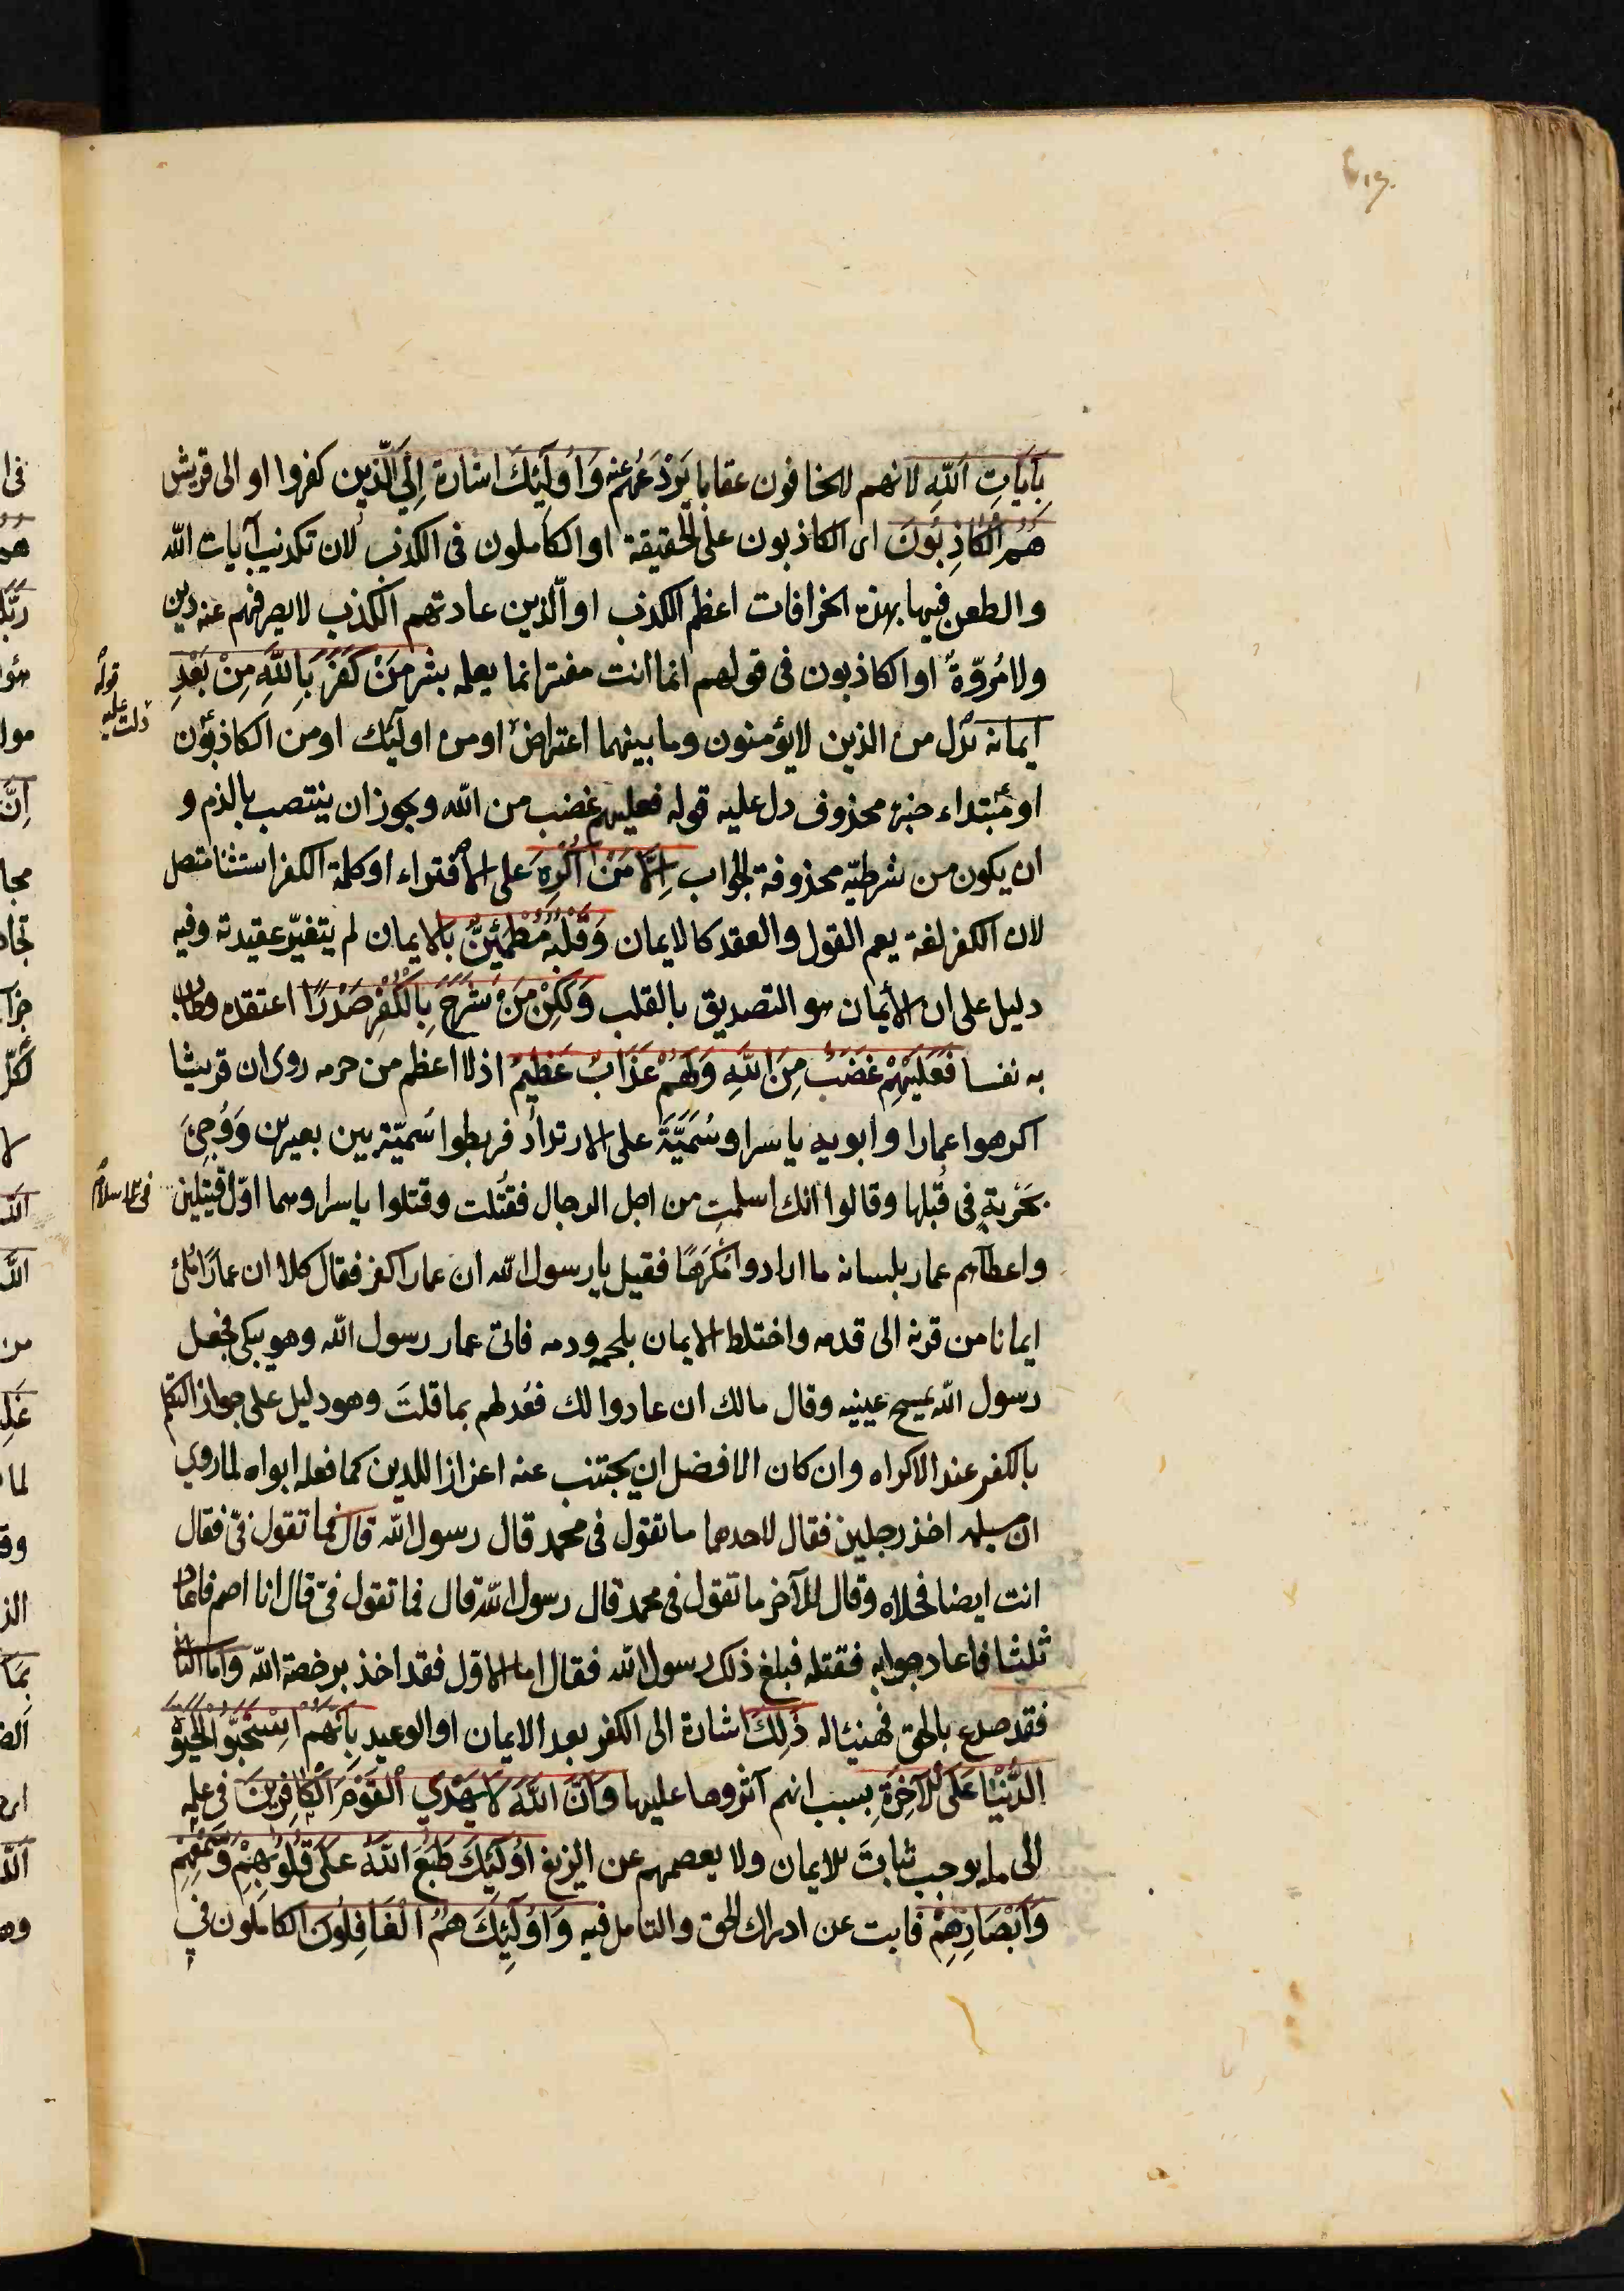 بِآيَاتِ اللّٰهِ لانهم لايخافون عقابا يَرْدَعُهم عنه وَاُولَٓئِكَ اشارة اِلَى الّذين كفروا او الى قريش
هُمُ الْكَاذِبُونَ اى الكاذبون على الحقيقة او الكاملون فى الكذب لان تكذيب آيات اللّٰه
والطعن فيها بهذه الخرافات اعظم الكذب او الّذين عادتهم الكذب لايصرفهم عنه دين
ولا مُروّةٌ او الكاذبون فى قولهم انما انت مفتر انما يعلمه بشر مَنْ كَفَرَ بِاللّٰهِ مِنْ بَعْدِ
ايمانه بَدَل من الذين لايؤمنون وما بينهما اعتراضٌ او من اولئك او من الكاذبون
او مُبتداء خبره محذوف دل عليه قوله فعليهم غضب من اللّٰه ويجوز ان ينتصب بالذم و
ان يكون من شرطيّة محذوفة الجواب اِلَّا مَنْ اُكْرِهَ على الافتراء او كلمة الكفر استثنا متصل
لان الكفر لغة يعم القول والعقد كالايمان وَقَلْبُهُ مُطْمَئِنٌّ بالايمان لم يتغيّر عقيدته وفيه
دليل على ان الأيمان هو التصديق بالقلب وَلَكِنْ مَنْ شَرَحَ بِالْكُفْرِ صَدْرًا اعتقده وطاب
به نفسا فَعَلَيْهِمْ غَضَبٌ مِنَ اللّٰهِ وَلَهُمْ عَذَابٌ عَظِيمٌ اذ لا اعظم من جرمه روى ان قريشا
اكرهوا عمارا وابويه ياسرا وسُمَيَّةَ على الارتداد فربطوا سُميّة بين بعيرين وَوُجِئَ
بحَرْبةٍ فى قُبلها وقالوا انك اسلمتِ من اجل الرجال فقُتلت وقتلوا ياسرا وهما اوّل قتيلين
واعطاهم عمار بلسانه ما ارادوا مُكرَهًا فقيل يا رسول اللّٰه ان عمارا كفر فقال كلا ان عمارًا مُلئ
ايمانا من قرنه الى قدمه واختلط الايمان بلحمه ودمه فاتى عمار رسول اللّٰه وهو يبكى فجعل
رسول اللّٰه يمسح عينيه وقال مالك ان عادوا لك فعُد لهم بما قلتَ وهو دليل على جواز التكلم
بالكفر عند الاكراه وان كان الافضل ان يجتنب عنه اعزازا للدين كما فعله ابواه لما روى
ان مسيلمه اخذ رجلين فقال لاحدهما ما تقول فى محمد قال رسول اللّٰه قال فما تقول فىّ فقال
انت ايضا فخلاه وقال للآخر ما تقول فى محمد قال رسول اللّٰه قال فما تقول فىّ قال انا اصم فاعاد
ثلثا فاعاد جوابه فقتله فبلغ ذلك رسول اللّٰه فقال اما الاوّل فقد اخذ برخصة اللّٰه واما الثا
فقد صدع بالحق فهنيئا له ذٰلِكَ اشارة الى الكفر بعد الايمان او الوعيد بِاَنَّهُمُ اسْتَحَبُّوا الْحَيٰوةَ
الدُّنْيَا عَلَى الْآخِرَةِ بسبب انهم آثروها عليها وَاَنَّ اللّٰهَ لَا يَهْدِي الْقَوْمَ الْكَافِرِينَ فى علمه
الى ما يوجب ثباتَ للايمان ولا يعصمهم عن الزيغ اُولٰٓئِكَ طَبَعَ اللّٰهُ عَلٰى قُلُوبِهِمْ وَسَمْعِهِمْ
وَاَبْصَارِهِمْ فابت عن ادراك الحق والتامل فيه وَاُولٰٓئِكَ هُمُ الْغَافِلُونَ الكاملون فى
قوله
دلت عليه
فى الاسلام